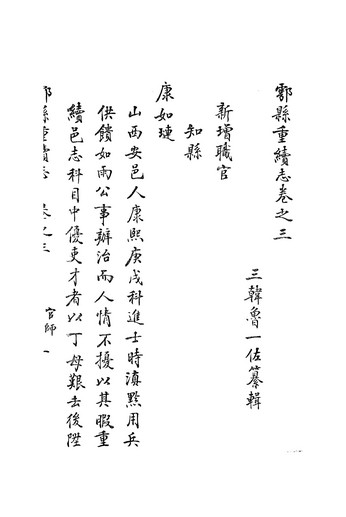 鄠縣重續志卷之三
三韓魯一佐纂輯
新增職官
知縣
康如璉
山西安邑人康熙庚戌科進士時滇黔用兵
供饋如雨公事辦治而人情不擾以其暇重
續邑志科目中優吏才者以丁母艱去後陞
鄠縣重續志 卷之三 官師 一